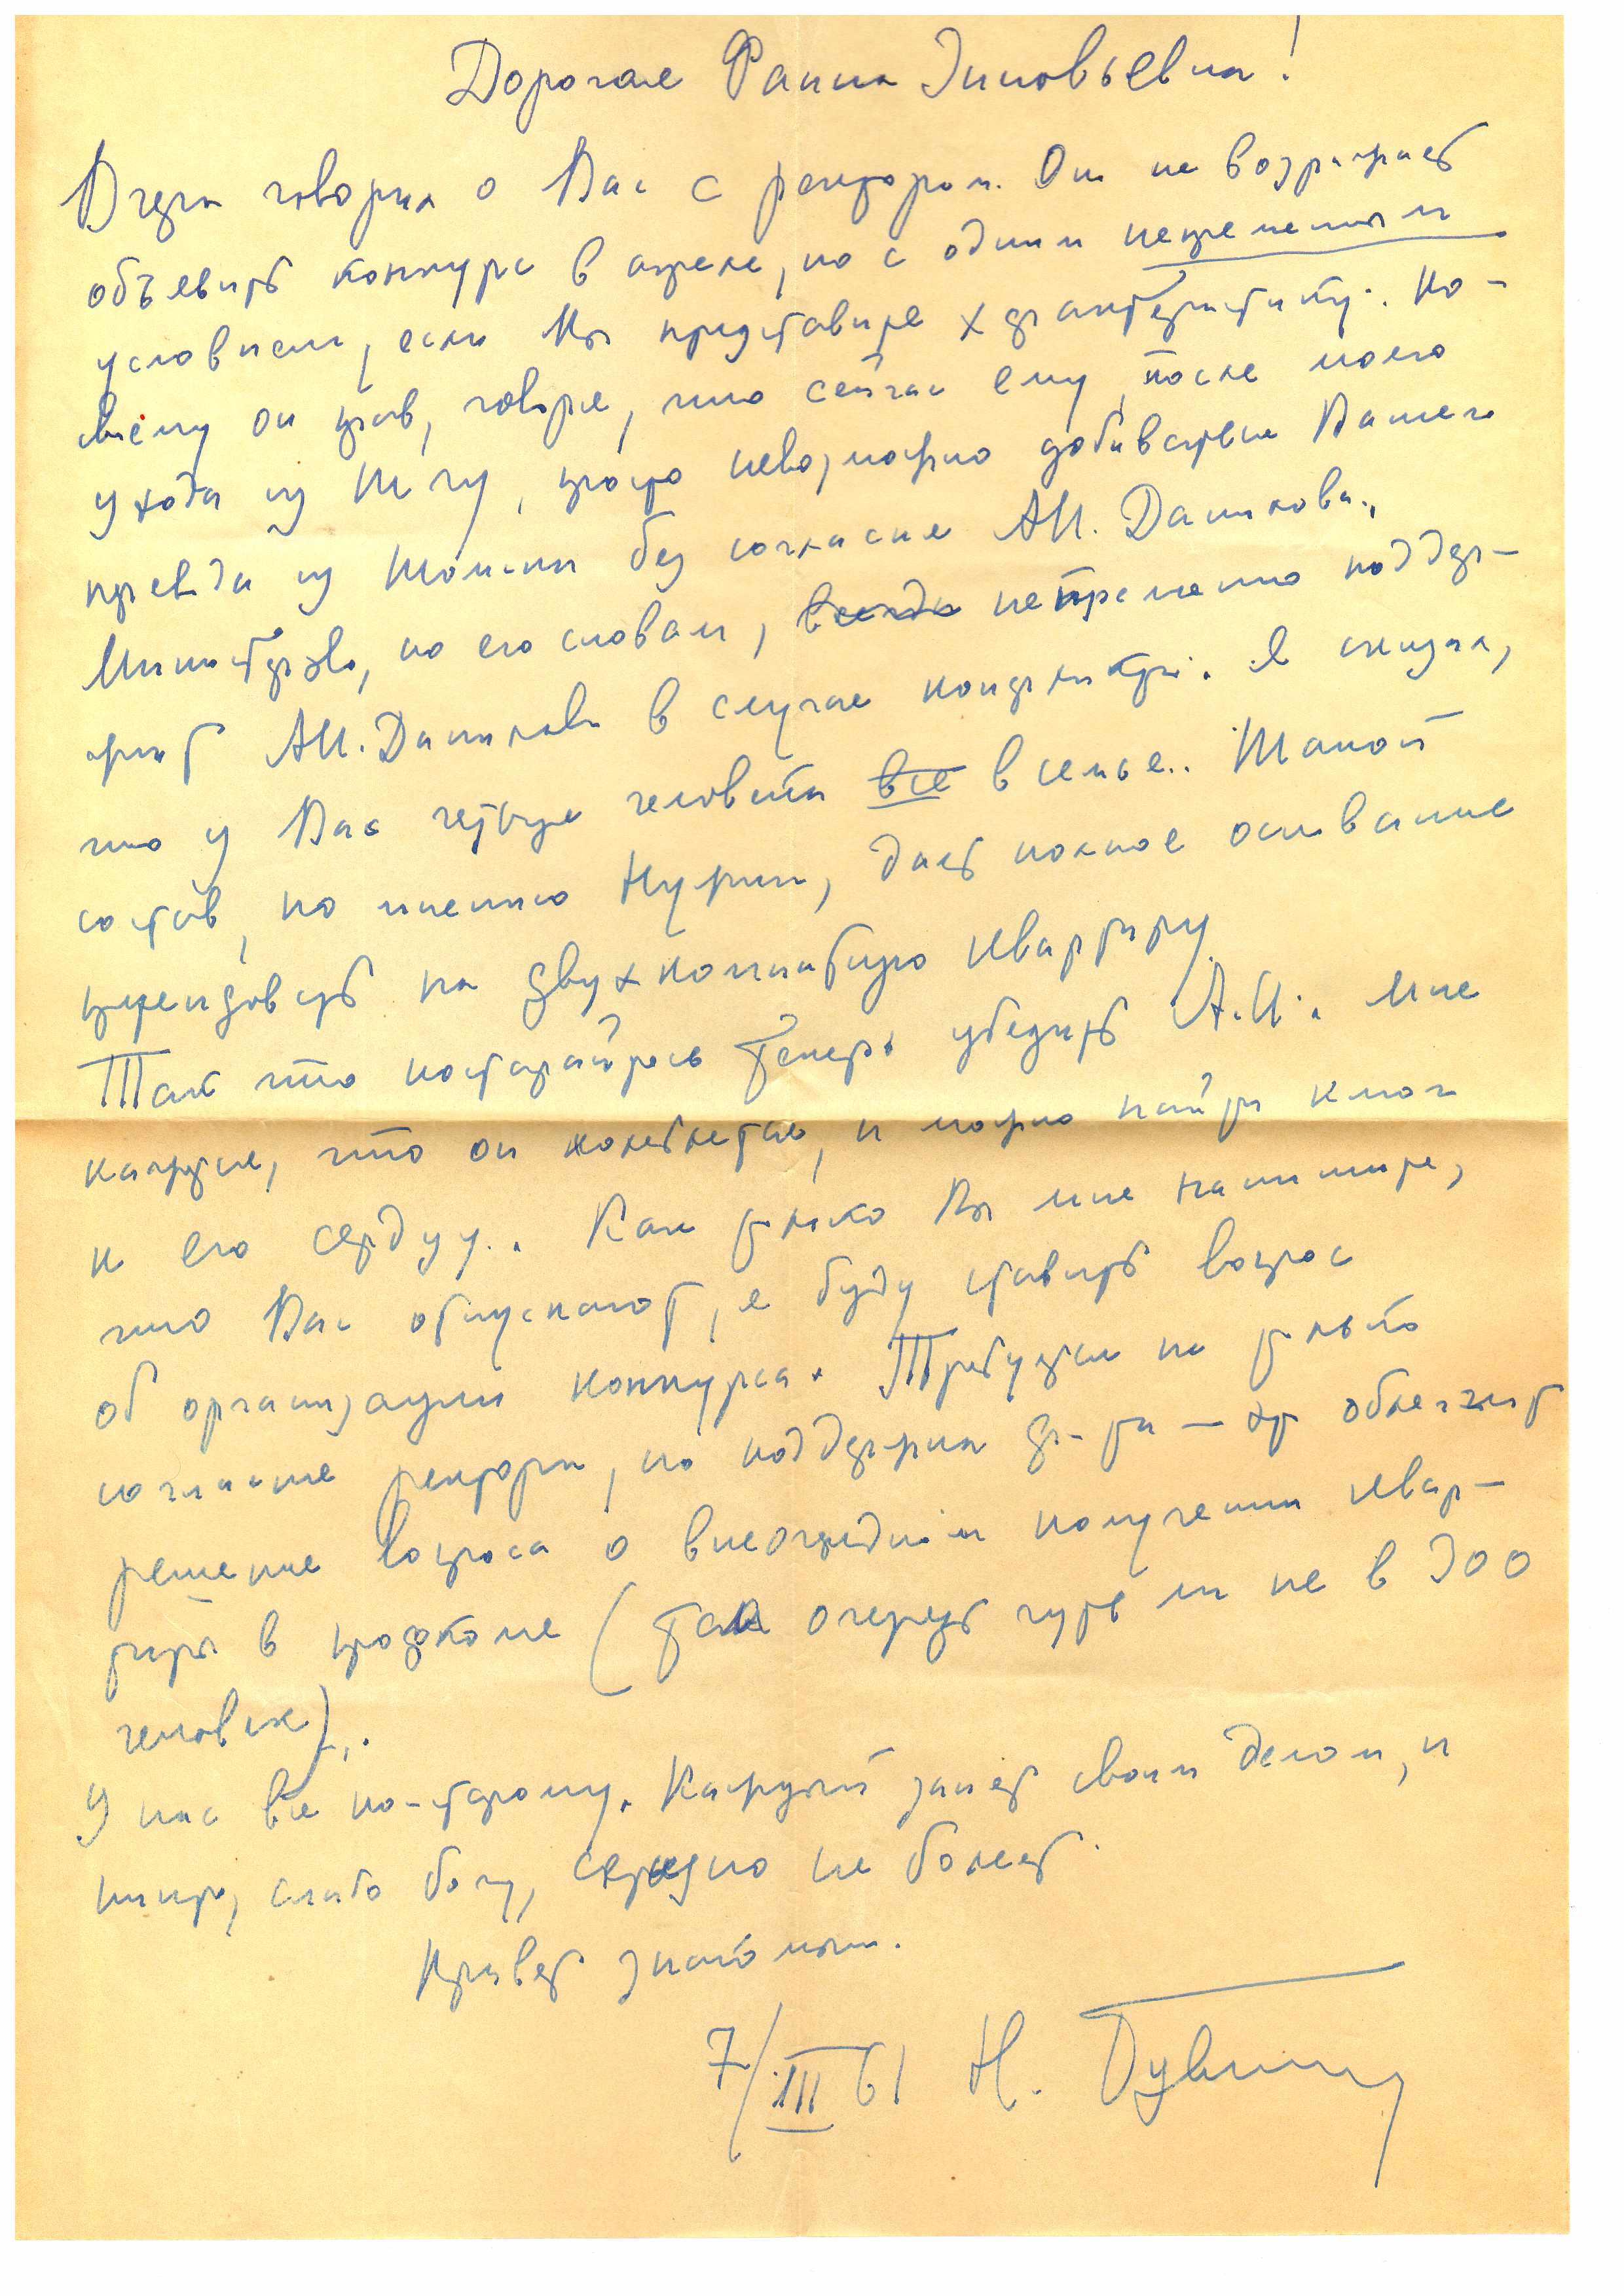 Дорогая Фаина Зиновьевна!
Вчера говорил о Вас с ректором. Он не возражает
объявить конкурс в апреле, но с одним непременным
условием, если Вы представите характеристику. По-
своему он прав, говоря, что сейчас ему, после моего
ухода из ТГУ, просто невозможно добиваться Вашего
перевода из Томска без согласия А.И. Данилова.
Министерство, по его словам, всегда непременно поддер-
жит А.И. Данилова в случае конфликта. Я сказал,
что у Вас четыре человека все в семье. Такой
состав, по мнению, дает полное основание
претендовать на двухкомнатную квартиру.
Так что постарайтесь теперь убедить А.И. Мне
кажется, что он колеблется, и можно найти ключ
к его сердцу. Как только Вы мне напишите,
что Вас отпускают, я буду ставить вопрос
об организации конкурса. Требуется не только
согласие ректора, но поддержка р-ра
решение вопроса о внеочередном получении квар-
тиры в профкоме (там очередь чуть ли не в 300
человек).
У нас все по-старому. Каждый занят своим делом, и
никто, слава богу, серьезно не болеет.
Привет знакомым.
7/III 61 Н.